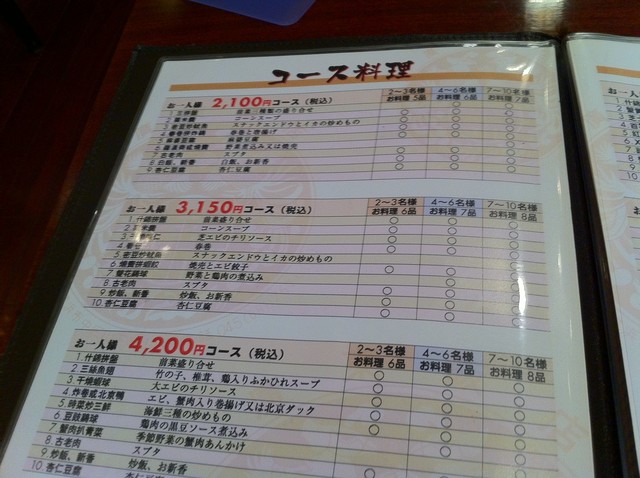 コース料理
お一人様 2,100円コース (税込) 2~3名様 お料理 5品 4~6名様 お料理 6品 7~10名様 お料理 7品
前菜三種類の盛り合せ
コーンスープ
スナックエンドウとイカの炒めもの
春巻と唐揚げ
麻婆豆腐
7. 古老肉 スブタ
8. 白飯、新香 白飯、お新香
9. 杏仁豆腐 杏仁豆腐
お一人様 3,150円コース (税込) 2~3名様 お料理 6品 4~6名様 お料理 7品 7~10名様 お料理 8品
1. 什錦拼盤 前菜盛り合せ
コーンスープ
芝エビのチリソース
春巻
スナックエンドウとイカの炒めもの
焼売とエビ餃子
野菜と鶏肉の煮込み
8. 古老肉 スブタ
9. 炒飯、新香 炒飯、お新香
10. 杏仁豆腐 杏仁豆腐
お一人様 4,200円コース (税込) 2~3名様 お料理 6品 4~6名様 お料理 7品 7~10名様 お料理 8品
1. 什錦拼盤 前菜盛り合せ
2. 三絲魚翅 竹の子、椎茸、鶏入りふかひれスープ
3. 干焼蝦球 大エビのチリソース
4. 炸春或北京鴨 エビ、蟹肉入り巻揚げ又は北京ダック
5. 時菜炒三鮮 海鮮三種の炒めもの
6. 豆豉鶏球 鶏肉の黒豆ソース煮込み
7. 蟹肉扒青菜 季節野菜の蟹肉あんかけ
8. 古老肉 スブタ
9. 炒飯、新香 炒飯、お新香
10. 杏仁豆腐 杏仁豆腐